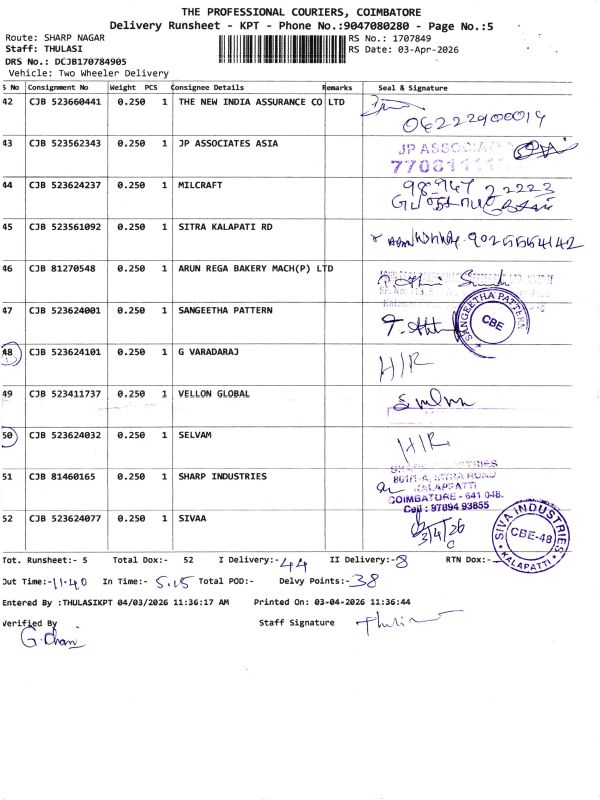 THE PROFESSIONAL COURIERS, COIMBATORE
Delivery Runsheet - KPT - Phone No.:9047080280 - Page No.:5
Route: SHARP NAGAR
RS No.: 1707849
Staff: THULASI
RS Date: 03-Apr-2026
DRS No.: DCJB170784905
Vehicle: Two Wheeler Delivery
S No Consignment No Weight PCS Consignee Details Remarks Seal & Signature
42 CJB 523660441 0.250 1 THE NEW INDIA ASSURANCE CO LTD
04222900014
43 CJB 523562343 0.250 1 JP ASSOCIATES ASIA
JP ASSOCIATES
44 CJB 523624237 0.250 1 MILCRAFT
98947 22223
45 CJB 523561092 0.250 1 SITRA KALAPATI RD
46 CJB 81270548 0.250 1 ARUN REGA BAKERY MACH(P) LTD
47 CJB 523624001 0.250 1 SANGEETHA PATTERN
SANGEETHA PATTERN
CBE
48 CJB 523624101 0.250 1 G VARADARAJ
H/R
49 CJB 523411737 0.250 1 VELLON GLOBAL
50 CJB 523624032 0.250 1 SELVAM
H/R
51 CJB 81460165 0.250 1 SHARP INDUSTRIES
SHARP INDUSTRIES
KALAPPATTI
COIMBATORE - 641 048.
Cell : 97894 93855
52 CJB 523624077 0.250 1 SIVAA
3/4/26
SIVA INDUSTRIES
CBE-48
KALAPATTI
Tot. Runsheet:- 5 Total Dox:- 52 I Delivery:- 44 II Delivery:- 8 RTN Dox:-
Out Time:- 11.40 In Time:- 5.15 Total POD:- Delvy Points:- 38
Entered By :THULASIKPT 04/03/2026 11:36:17 AM Printed On: 03-04-2026 11:36:44
Verified By
Staff Signature